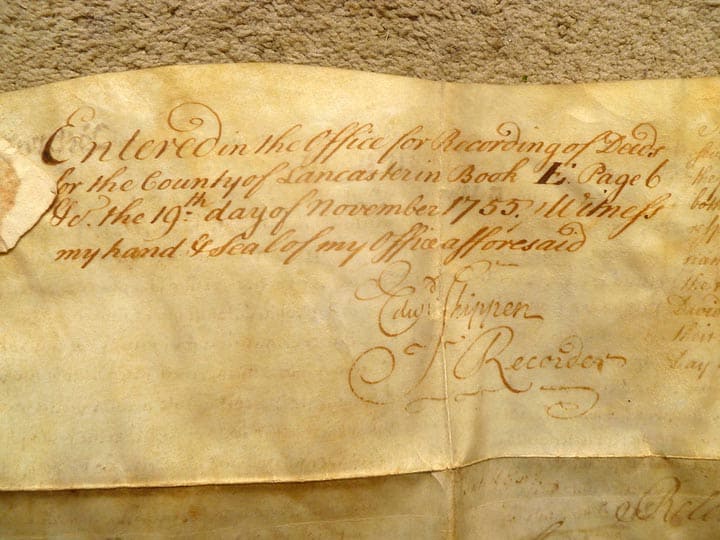 Entered in the Office for Recording of Deeds
for the County of Lancaster in Book E. Page 6
&c. the 19th day of November 1755. Witness
my hand & Seal of my Office afforesaid
Edwd Shippen
Recorder
the
Day